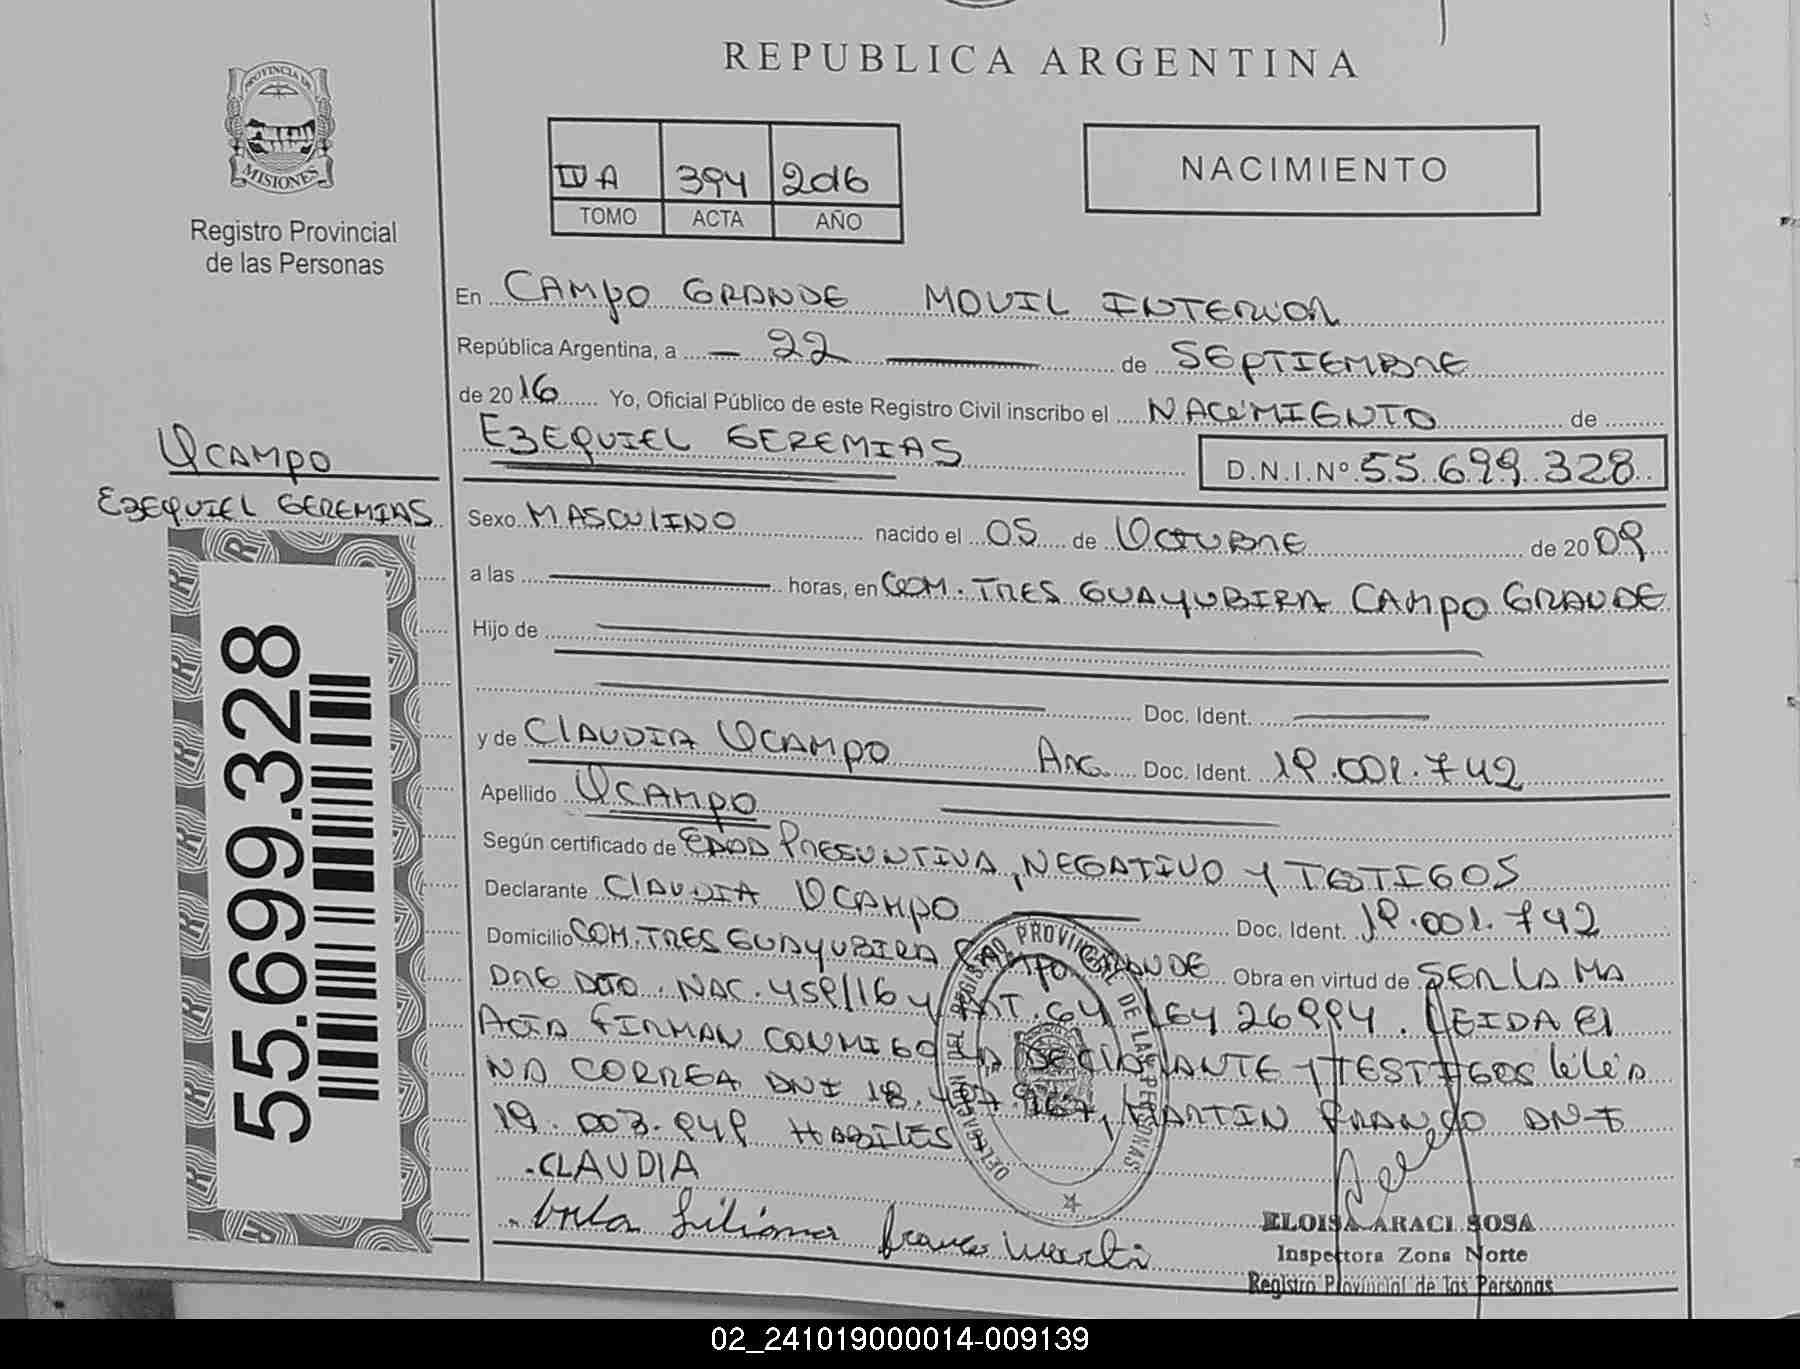 REPUBLICA ARGENTINA
PROVINCIA DE
MISIONES
Registro Provincial
de las Personas
IV A 394 2016
TOMO ACTA AÑO
NACIMIENTO
En CAMPO GRANDE MOVIL INTERIOR
República Argentina, a 22 de SEPTIEMBRE
de 2016 Yo, Oficial Público de este Registro Civil inscribo el NACIMIENTO de
EZEQUIEL GEREMIAS
D.N.I.Nº 55.699.328
OCAMPO
EZEQUIEL GEREMIAS
55.699.328
Sexo MASCULINO nacido el 05 de OCTUBRE de 2009
a las horas, en COM. TRES GUAYUBIRA CAMPO GRANDE
Hijo de
Doc. Ident.
y de CLAUDIA OCAMPO ARG. Doc. Ident. 19.001.742
Apellido OCAMPO
Según certificado de EDAD PRESUNTIVA, NEGATIVO Y TESTIGOS
Declarante CLAUDIA OCAMPO Doc. Ident. 19.001.742
Domicilio COM. TRES GUAYUBIRA CAMPO GRANDE Obra en virtud de SER LA MA
DRE DTO. NAC. 459/16 y ART. 64 LEY 26994. LEIDA El
ACTA FIRMAN CONMIGO LA DECLARANTE y TESTIGOS
NA CORREA DNI 18. MARTIN FRANCO DNI
19.003.949 HABILES
CLAUDIA
Liliana Franco
ELOISA ARACI SOSA
Inspectora Zona Norte
Registro Provincial de las Personas
02_241019000014-009139